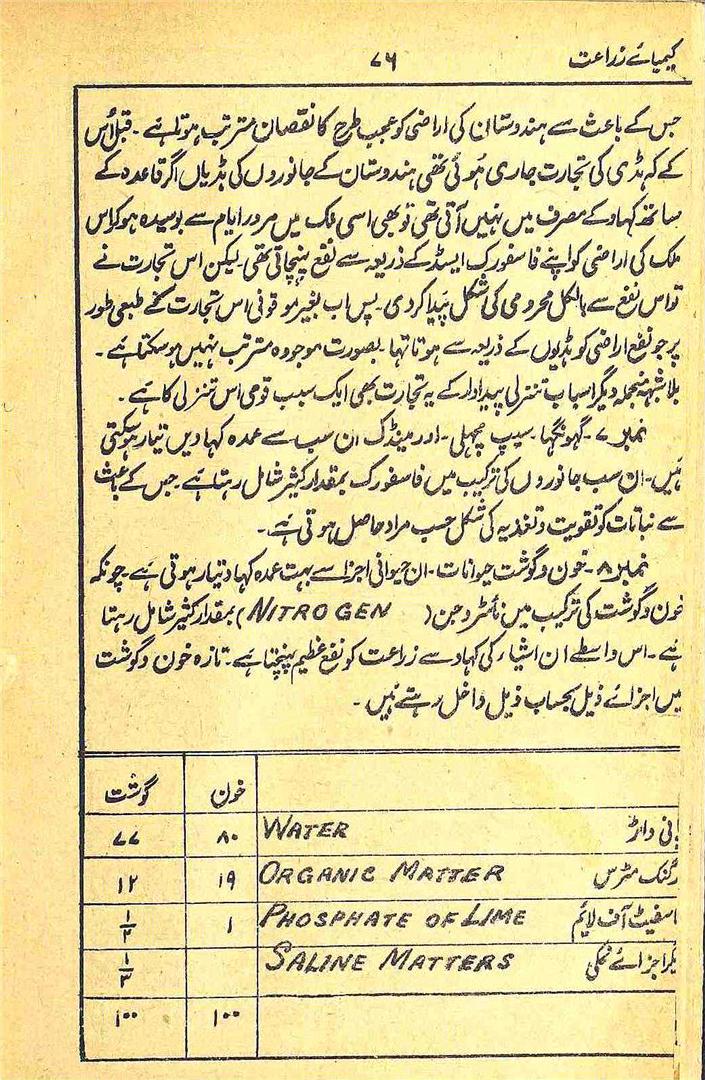 کیمیائے زراعت
۷۶
جس کے باعث سے ہندوستان کی اراضی کو عجب طرح کا نقصان مترتب ہوتا ہے۔ قبل اُس
کے کہ ہڈی کی تجارت جاری ہوئی تھی ہندوستان کے جانوروں کی ہڈیاں اگر قاعدہ کے
ساتھ کہاد کے مصرف میں نہیں آتی تھی تو بھی اسی ملک میں مرور ایام سے بوسیدہ ہو کر اس
ملک کی اراضی کو اپنے فاسفورک ایسڈ کے ذریعہ سے نفع پہنچاتی تھی۔ لیکن اس تجارت نے
تو اس نفع سے بالکل محرومی کی شکل پیدا کر دی۔ پس اب بغیر موقوفی اس تجارت کے طبعی طور
پر جو نفع اراضی کو ہڈیوں کے ذریعہ سے ہوتا تہا۔ بصورت موجودہ مترتب نہیں ہو سکتا ہے۔
بلا شبہہ منجملہ دیگر اسباب تنزلی پیداوار کے یہ تجارت بھی ایک سبب قومی اس تنزلی کا ہے۔
نمبر ۷۔ گہونگہا۔ سیپ مچھلی۔ اور مینڈک ان سب سے عمدہ کہادیں تیار ہو سکتی
ہیں۔ ان سب جانوروں کی ترکیب میں فاسفورک بمقدار کثیر شامل رہتا ہے۔ جس کے باعث
سے نباتات کو تقویت و تغذیہ کی شکل حسب مراد حاصل ہوتی ہے۔
نمبر ۸۔ خون و گوشت حیوانات۔ ان حیوانی اجزا سے بہت عمدہ کہاد تیار ہوتی ہے۔ چونکہ
خون و گوشت کی ترکیب میں نائٹروجن (NITROGEN) بمقدار کثیر شامل رہتا
ہے۔ اس واسطے ان اشیاء کی کہاد سے زراعت کو نفع عظیم پہنچتا ہے۔ تازہ خون و گوشت
میں اجزائے ذیل بحساب ذیل داخل رہتے ہیں۔
خون گوشت
پانی واٹر WATER ۸۰ ۷۷
رگنک مٹرس ORGANIC MATTER ۱۹ ۱۲
اسفیٹ آف لایم PHOSPHATE OF LIME ۱ ۱/۲
یگر اجزائے نمکی SALINE MATTERS ۱/۳
۱۰۰ ۱۰۰